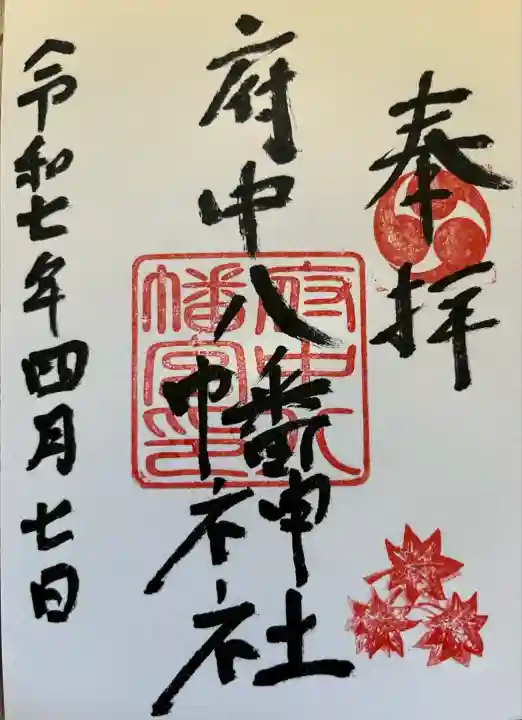 奉拝
府中八幡神社
府中八幡宮印
令和七年四月七日